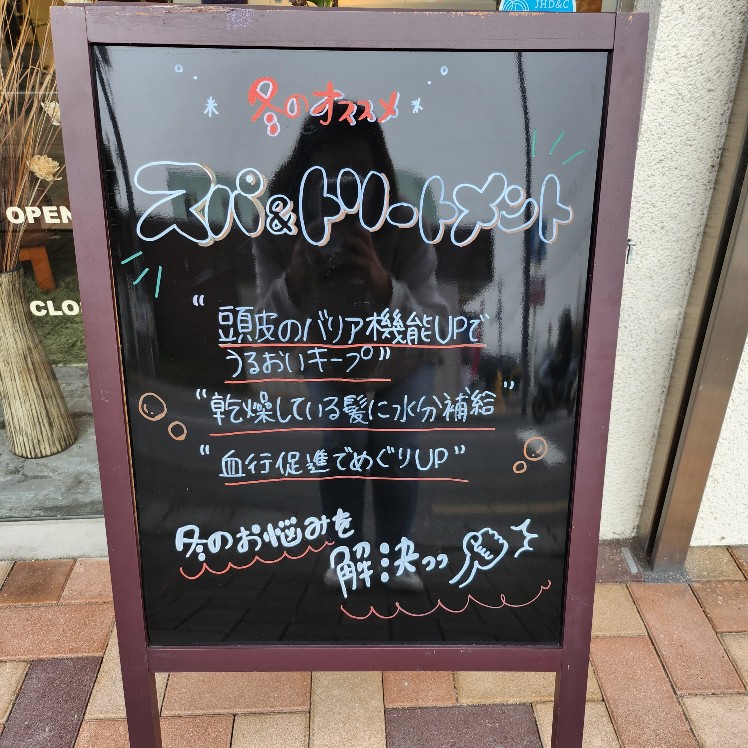 JHD&C
冬のオススメ
スパ&トリートメント
"頭皮のバリア機能UPで
うるおいキープ"
"乾燥している髪に水分補給"
"血行促進でめぐりUP"
冬のお悩みを
解決ッッ
OPEN
CLO